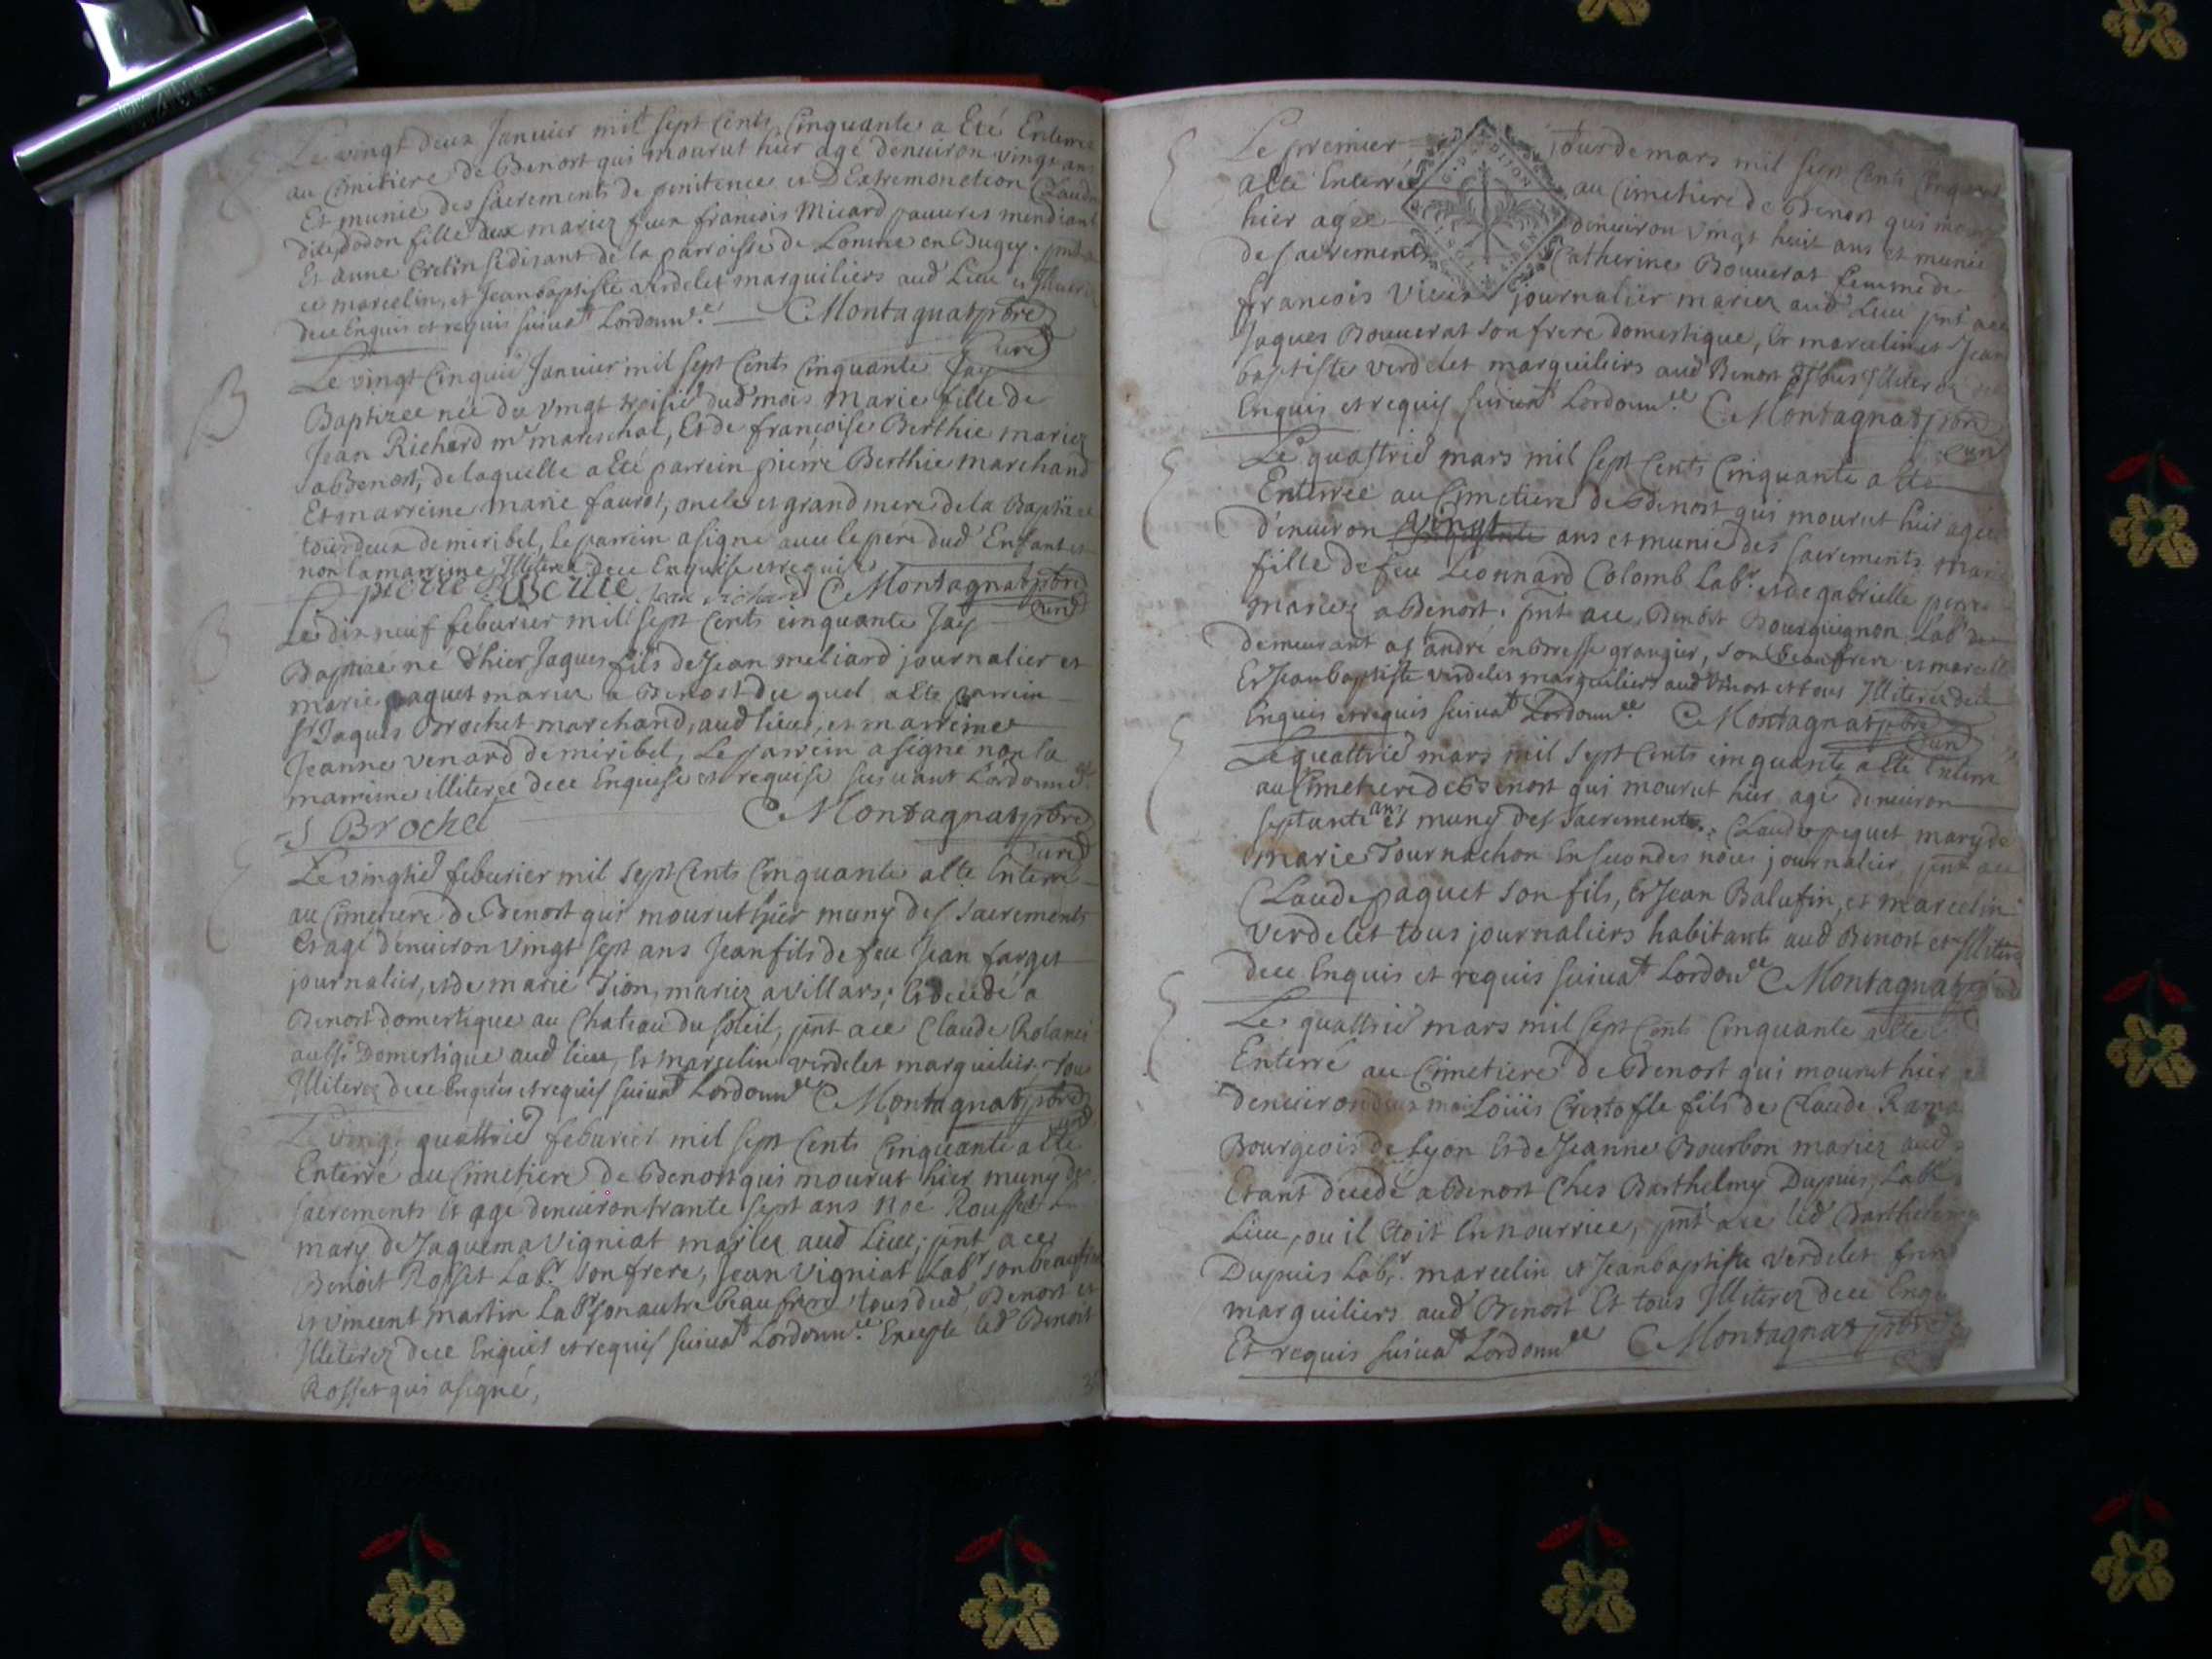 Le vingt deux Janvier mil sept cents Cinquante a Eté Enterré
au Cimitiere de Benost qui mourut hier agé denuiron vingt ans
Et munie des sacrements de penitence et D Extremonction Claudi
dite dodon fille des mariez feux francois Micard pauures mendiant
Et anne Cretin se disant de la parroisse de Lomne en Bugey. pnt
ce marcelin, et Jean baptiste verdelet marguiliers aud Lieu et
dece Enquis et requis suiuat Lordonnce CMontagnat pbre
Curé
Le vingt cinquie Januier mil sept Cents Cinquante Jay
Baptizee née du vingt troisie dud mois marie fille de
Jean Richard me mareschal, Et de francoise Berthie mariez
a Benost, de laquelle a Eté parrein pierre Berthie marchand
Et marreine marie faurot, oncle et grand mere de la Baptizee
tous deux de miribel, le parrein a signé auec le pere dud Enfant et
non la marreine Illiteree dece Enquise et requise
pierre Jean richard CMontagnat pbre
Curé
Le dix neuf feburier mil sept Cents cinquante Jay
Baptizé né d'hier Jaques fils de Jean meliard journalier et
marie paquet mariez a Benost du quel a Eté parrein
sr Jaques Brochet marchand, aud lieu, et marreine
Jeanne venard de miribel, Le parrein a signé non la
marreine illiteree dece Enquise et requise suiuant Lordonnce
J Brochet CMontagnat pbre
Curé
Le vingtie feburier mil sept Cents Cinquante a Eté Enterré
au Cimetiere de Benost qui mourut hier muny des sacrements
Et agé denuiron vingt sept ans Jean fils de feu Jean farget
journalier, et de marie Tion, mariez a villars; Et decedé a
Benost domestique au Chateau du soleil, pnt ace Claude Rolanci
aussi Domestique aud lieu, Et marcelin verdelet marguilier. tous
Illiterez dece Enquis et requis suiuat Lordonnce CMontagnat pbre
Curé
Le vingt quattrie feburier mil sept Cents Cinquante a Eté
Enterré au Cimetiere de Benost qui mourut hier muny des
sacrements Et agé denuiron trante sept ans Noé Rousset
mary de Jaquema Vigniat mariez aud Lieu; pnt ace
Benoit Rosset Labr son frere, Jean Vigniat Labr son beaufre
et vincent martin Labr son autre beaufrere tous dud Benost et
Illiterez dece Enquis et requis suiuat Lordonnce Excepte led Benoit
Rosset qui a signé,
Le premier Jour de mars mil sept Cents Cinquante
a Eté Enterrée au Cimetiere de Benost qui mourut
hier agée denuiron vingt huit ans et munie
de sacrements Catherine Bouuerat femme de
francois Vieux journalier mariez aud Lieu pnt ace
Jaques Bouuerat son frere domestique, Et marcelin et Jean
baptiste verdelet marguiliers aud Benost tous Illiterez
Enquis et requis suiuat Lordonnce CMontagnat pbre
Curé
Le quattrie mars mil sept Cents Cinquante a Eté
Enterrée au Cimetiere de Benost qui mourut hier agée
d'enuiron vingt ans et munie des sacrements marie
fille de feu Leonnard Colomb Labr et de gabrielle
mariez a Benost. pnt ace, Benoit Bourguignon Labr
demeurant a st andré en Bresse granger, son Beaufrere et marcelin
Et Jean baptiste verdelet marguiliers aud Benost et tous Illiterez dece
Enquis et requis suiuat Lordonnce CMontagnat pbre
Curé
Le quattrie mars mil sept Cents cinquante a Eté Enterré
au Cimetiere de Benost qui mourut hier agé denuiron
septante ans et muny des sacrements. Claude peguet mary de
marie Tournachon En secondes noces journalier, pnt ace
Claude paquet son fils, Et Jean Balufin, et marcelin
Verdelet tous journaliers habitants aud Benost et Illiterez
dece Enquis et requis suiuat Lordonce CMontagnat pbre
Le quattrie mars mil sept Cents Cinquante a Eté
Enterré au Cimetiere de Benost qui mourut hier
denuiron deux mois Loüis Cristofle fils de Claude Rama
Bourgeois de Lyon Et de Jeanne Bourbon mariez aud
Etant decedé a Benost Ches Barthelmy Dupuis, Labr
Lieu, ou il Etoit En nourrice, pnt ace led Barthelemy
Dupuis Labr. marcelin et Jean baptiste verdelet frere
marguiliers aud Benost Et tous Illiterez dece Enqui
Et requis suiuat Lordonnce CMontagnat pbre